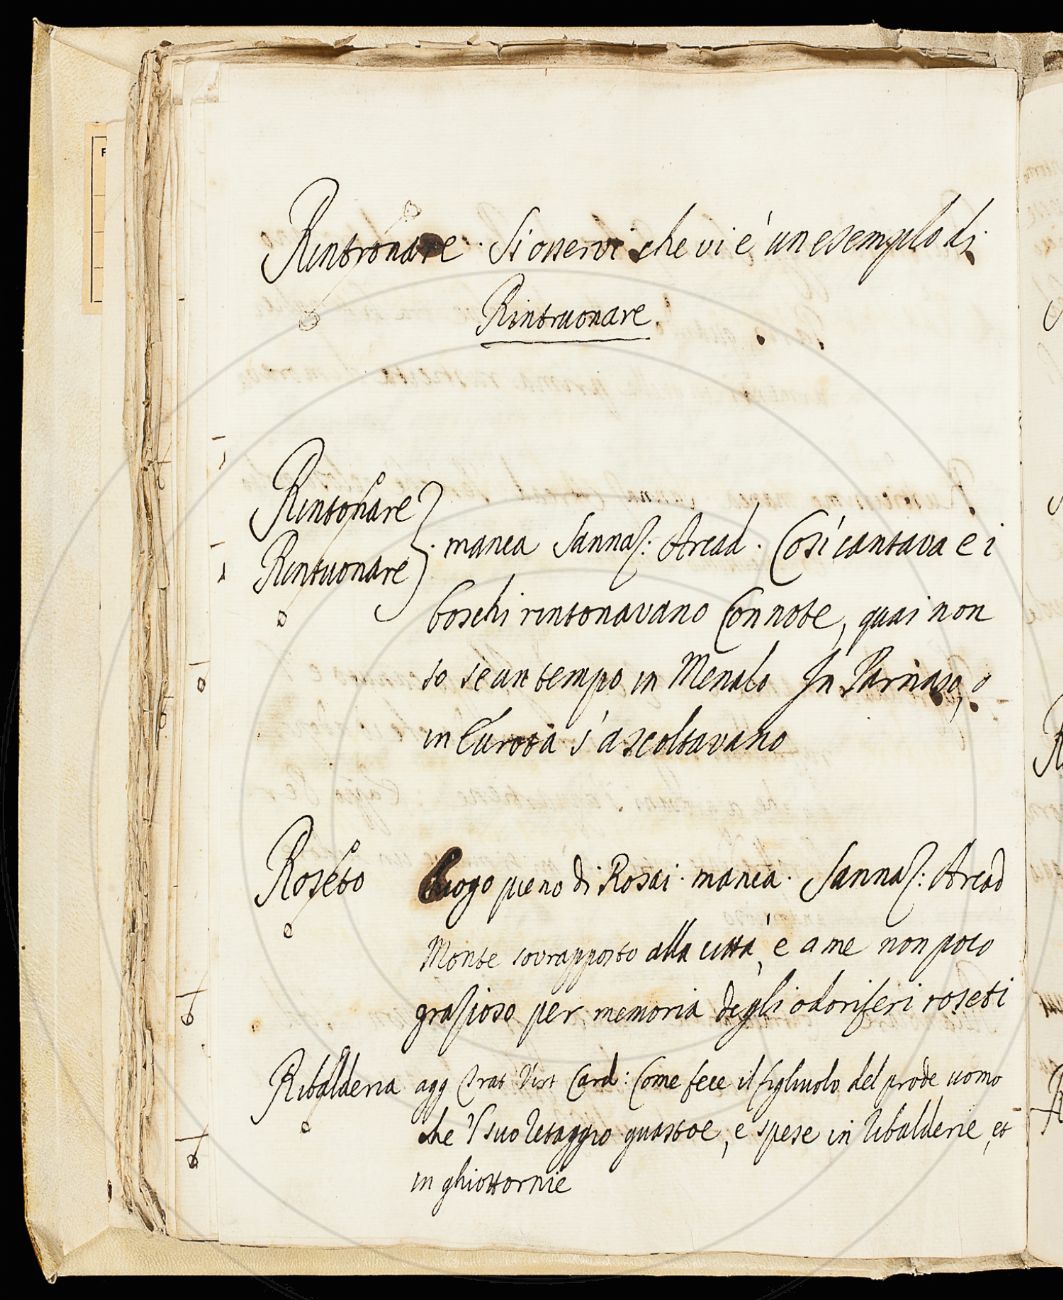 Rintronare. Si osservi che vi è un esemplo di
Rintruonare.
Rintonare
Rintuonare
manca Sannaz: Arcad. Così cantava e i
boschi rintonavano Con note, quai non
so se un tempo in Menalo In Parnaso, o
in Eurota s'ascoltavano
Roseto luogo pieno di Rosai. manca. Sannaz: Arcad
Monte sovrapposto alla città, e a me non poco
grazioso per memoria degli odoriferi roseti
Ribalderia agg Trat Virt Card: Come fece il figliuolo del prode uomo
che 'l suo retaggio guastoe, e spese in ribalderie, et
in ghiottornie